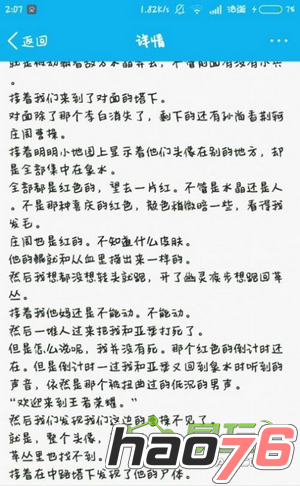 2:07 1.82K/s
返回 详情
就是被动朝着敌方水晶走去，不管前面有没有小兵
。
接着我们来到了对面的塔下。
对面除了那个李白消失了，剩下的还有孙尚香荆轲
庄周曹操。
接着明明小地图上显示着他们头像在别的地方，却
是全部集中在泉水。
全部都是红色的，望去一片红。不管是水晶还是人
。不是那种喜庆的红色，颜色稍微暗一些，看得我
发毛。
庄周也是红的。不知道什么皮肤。
他的鲲就和从血里捞出来一样的。
然后我想都没想转头就跑，开了幽灵疾步想跑回草
丛。
接着我他妈还是不能动。不能动。
然后一堆人过来把我和亚瑟打死了。
但是怎么说呢，我并没有死。那个红色的倒计时还
在。但是倒计时一过我和亚瑟又回到泉水时听到的
声音，依然是那个被扭曲过的低沉的男声。
“欢迎来到王者荣耀。”
然后我们发现我们这边的
不见了。
就是，整个头像，
草丛里也找不到。
接着在中路塔下发现了他的尸体。
hao76